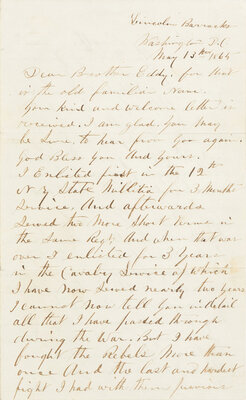 Lincoln Barracks
Washington D.C.
May 13th 1864
Dear Brother Eddy, for that
is the old familiar Name.
Your kind and welcome letter is
received. I am glad you may
be Sure, to hear from You again.
God Bless You And Yours.
I Enlisted first in the 12th
N Y State Militia for 3 Months
Service, And afterwards
Served two More Short terms in
the Same Regt, And when that was
over I enlisted for 3 Years
in the Cavalry Service of Which
I have Now Served nearly two Years
I cannot Now tell You in detail
all that I have passed through
during the War. But I have
fought the Rebels More than
once And the last and hardest
fight I had with them previous